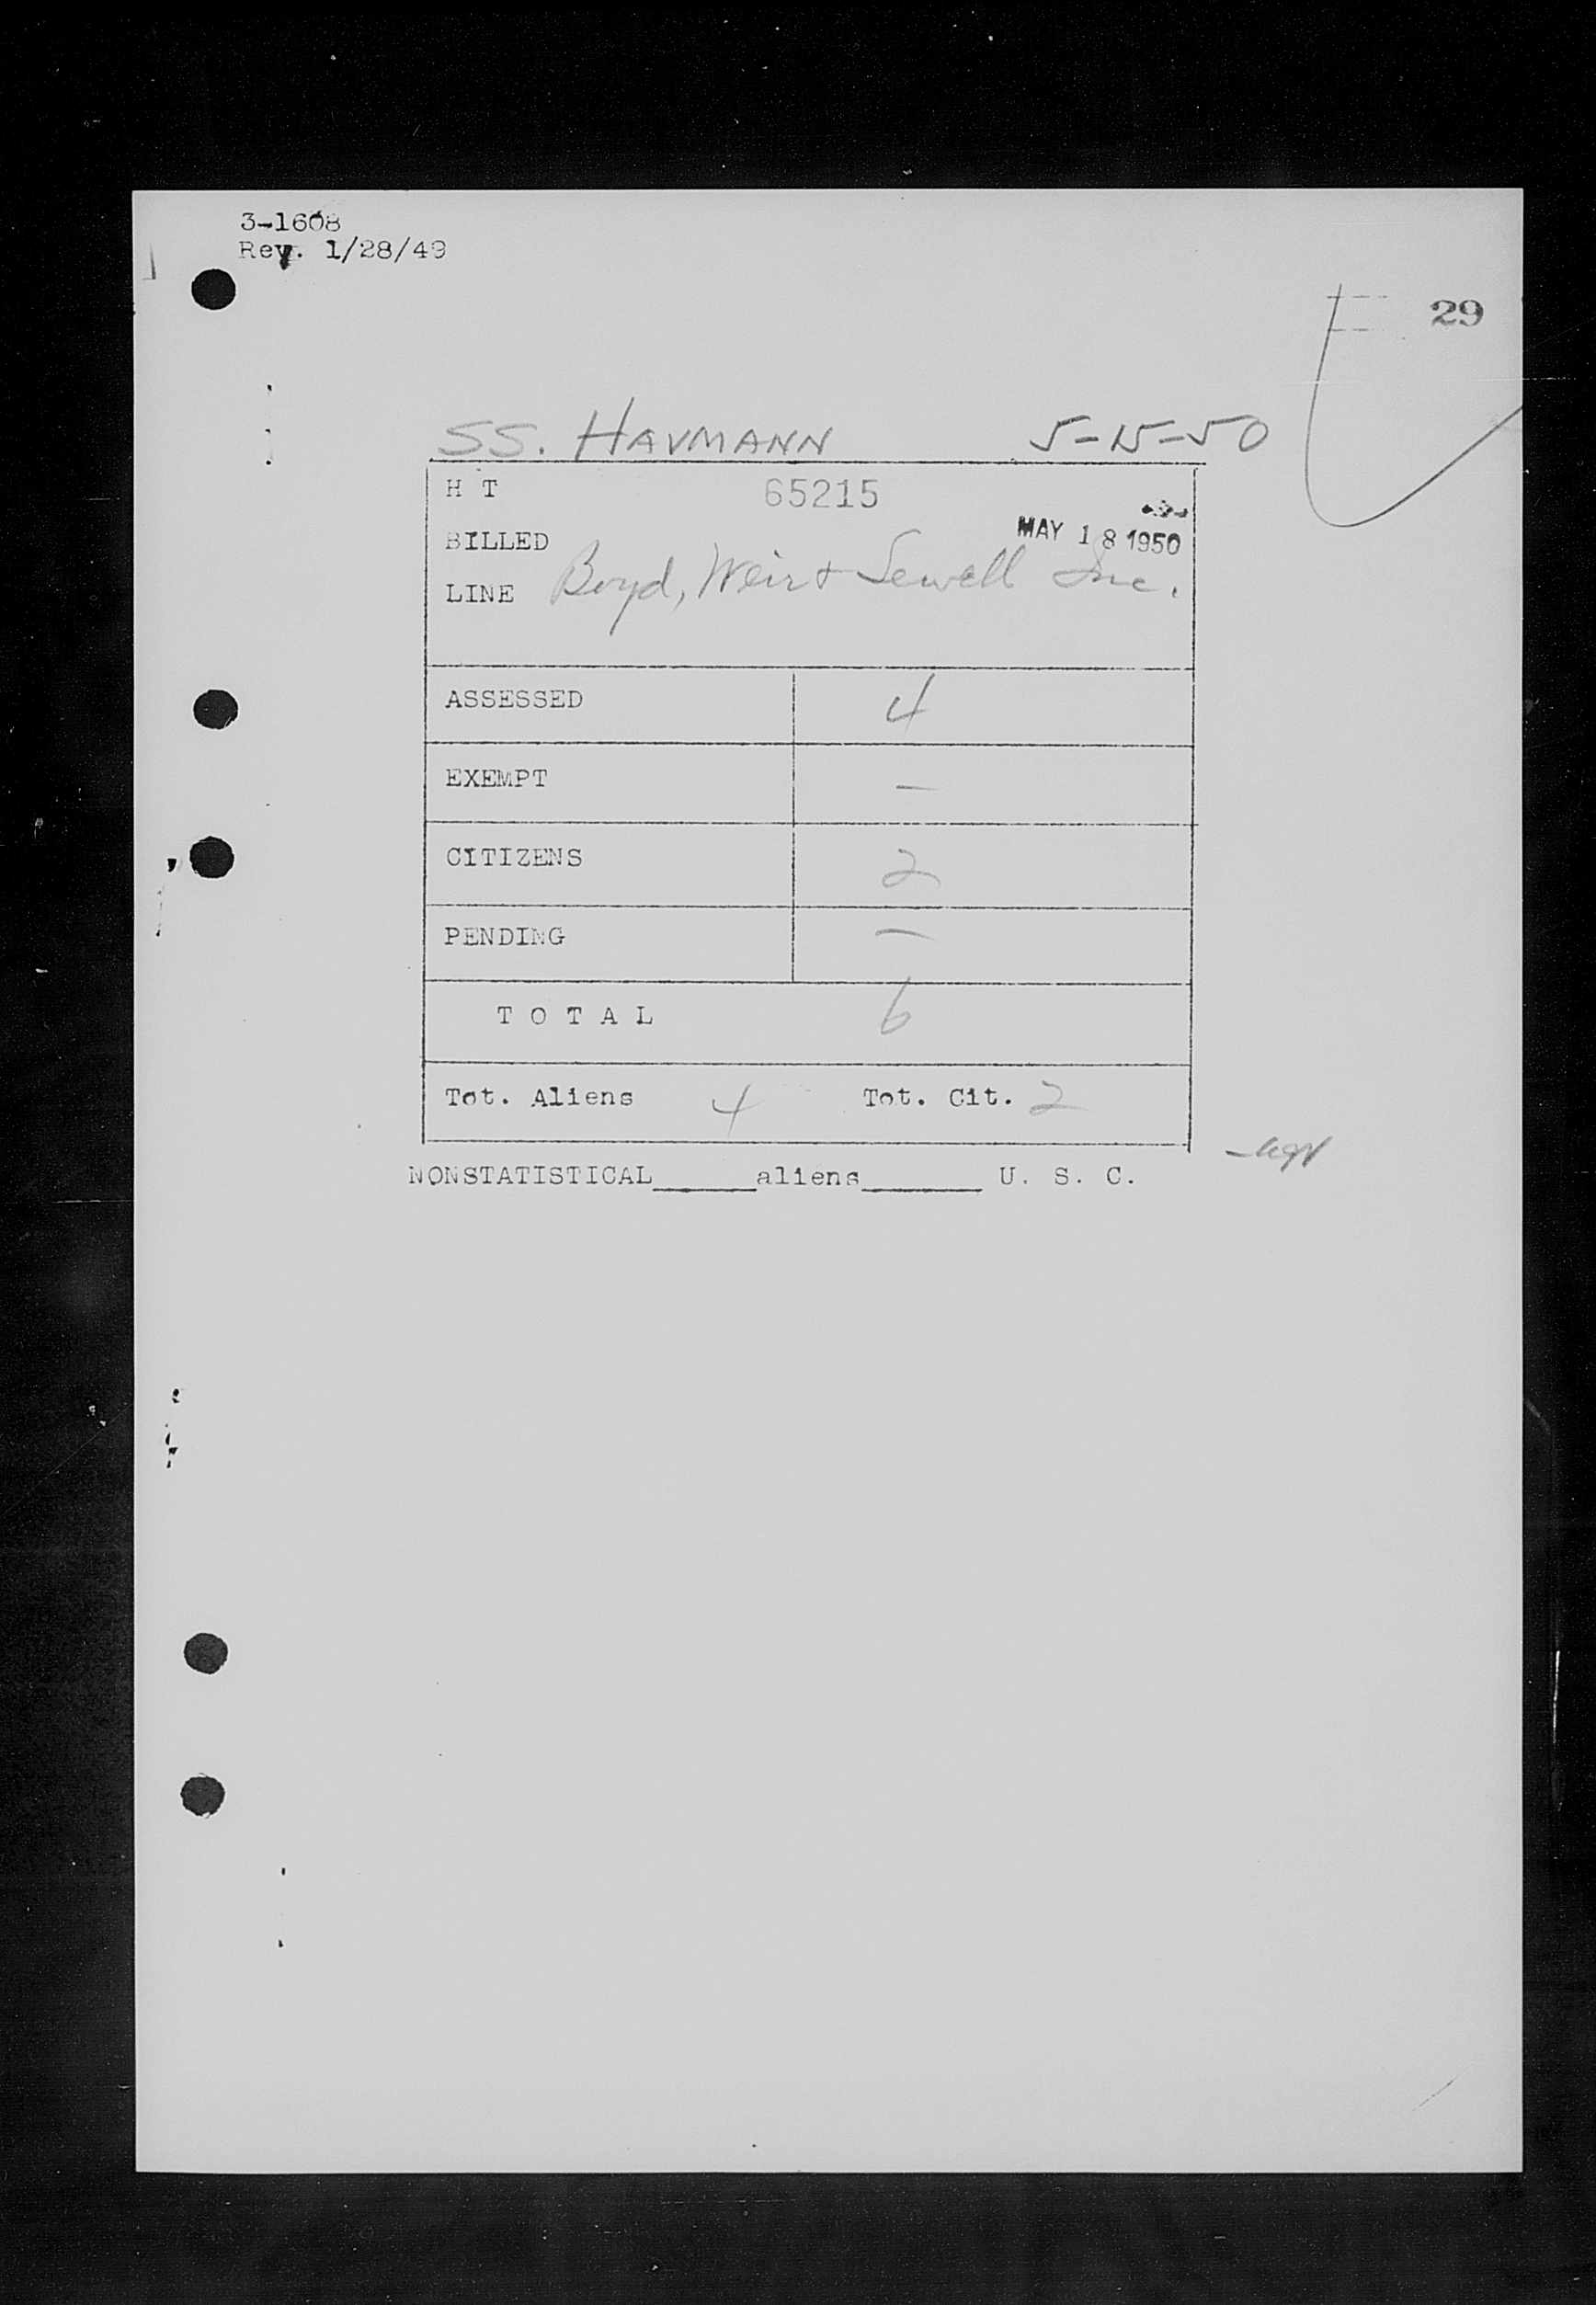 3-1608
Rev. 1/28/49
29
SS. HAVMANN 5-15-50
H T 65215
BILLED MAY 18 1950
LINE Boyd, Weir & Sewell Inc.
ASSESSED 4
EXEMPT —
CITIZENS 2
PENDING —
T O T A L 6
Tot. Aliens 4 Tot. Cit. 2
NONSTATISTICAL______aliens_______ U. S. C.